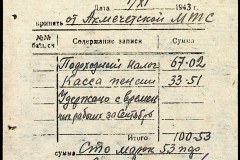 Дата 1/XI 1943 г.
принять от Акмечетской МТС
№№ бал. сч Содержание записи Сумма
Подоходный налог 67-02
Касса пенсии 33-51
Удержано с времен
них рабочих за Сентябрь
Итого: 100-53
Сумма Сто марок 53 пф